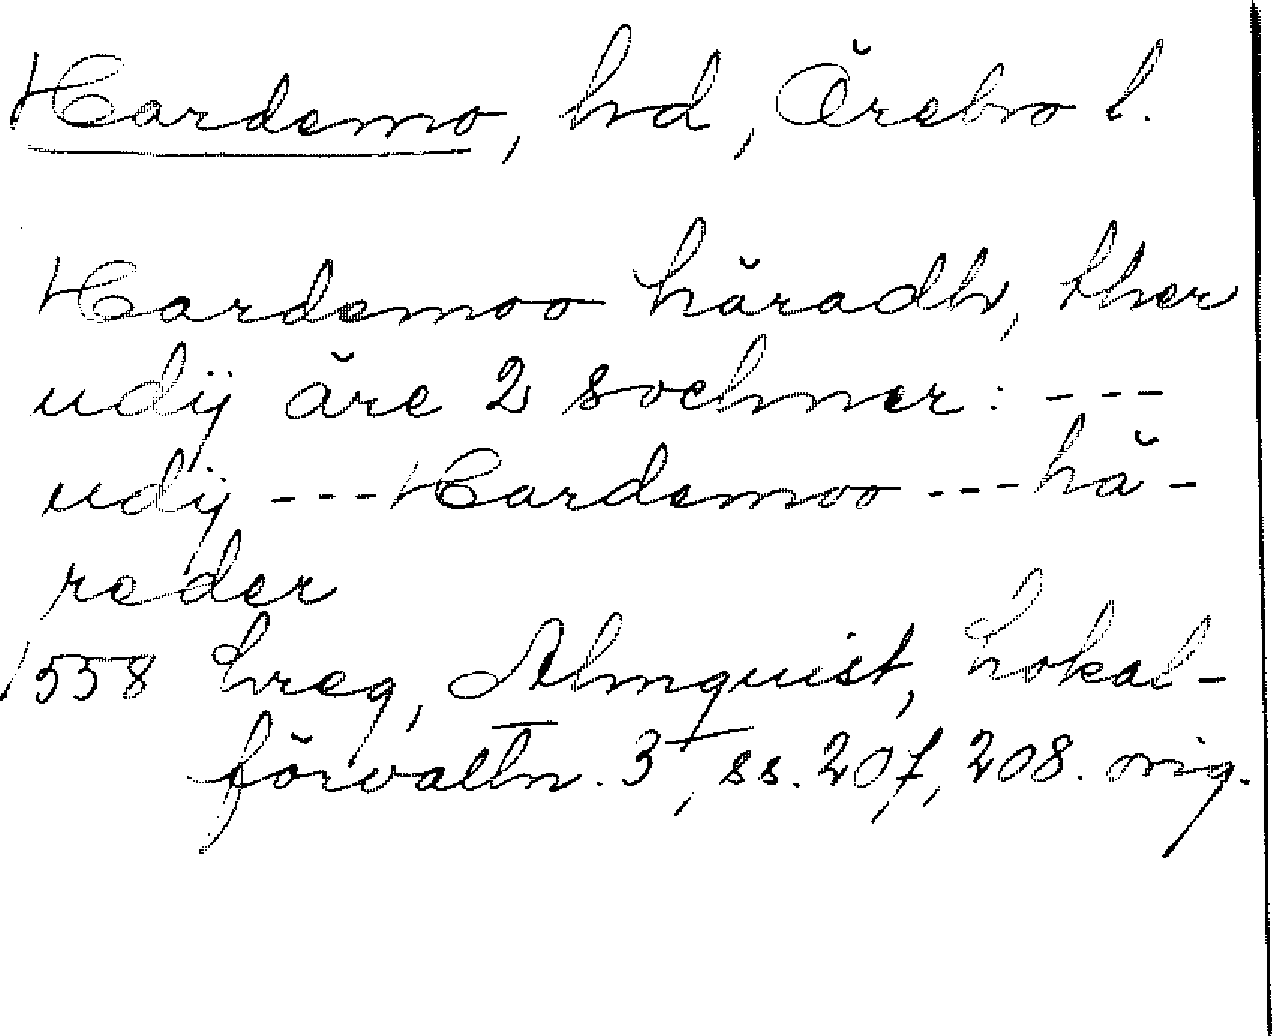 Hardemo, hd, Örebro l.
Hardemoo häradh, ther
udij äre 2 sochner: ---
udij --- Hardemoo --- hä-
reder
1558 hreg, Almquist, Lokal-
förvaltn. 3, ss. 207, 208. orig.